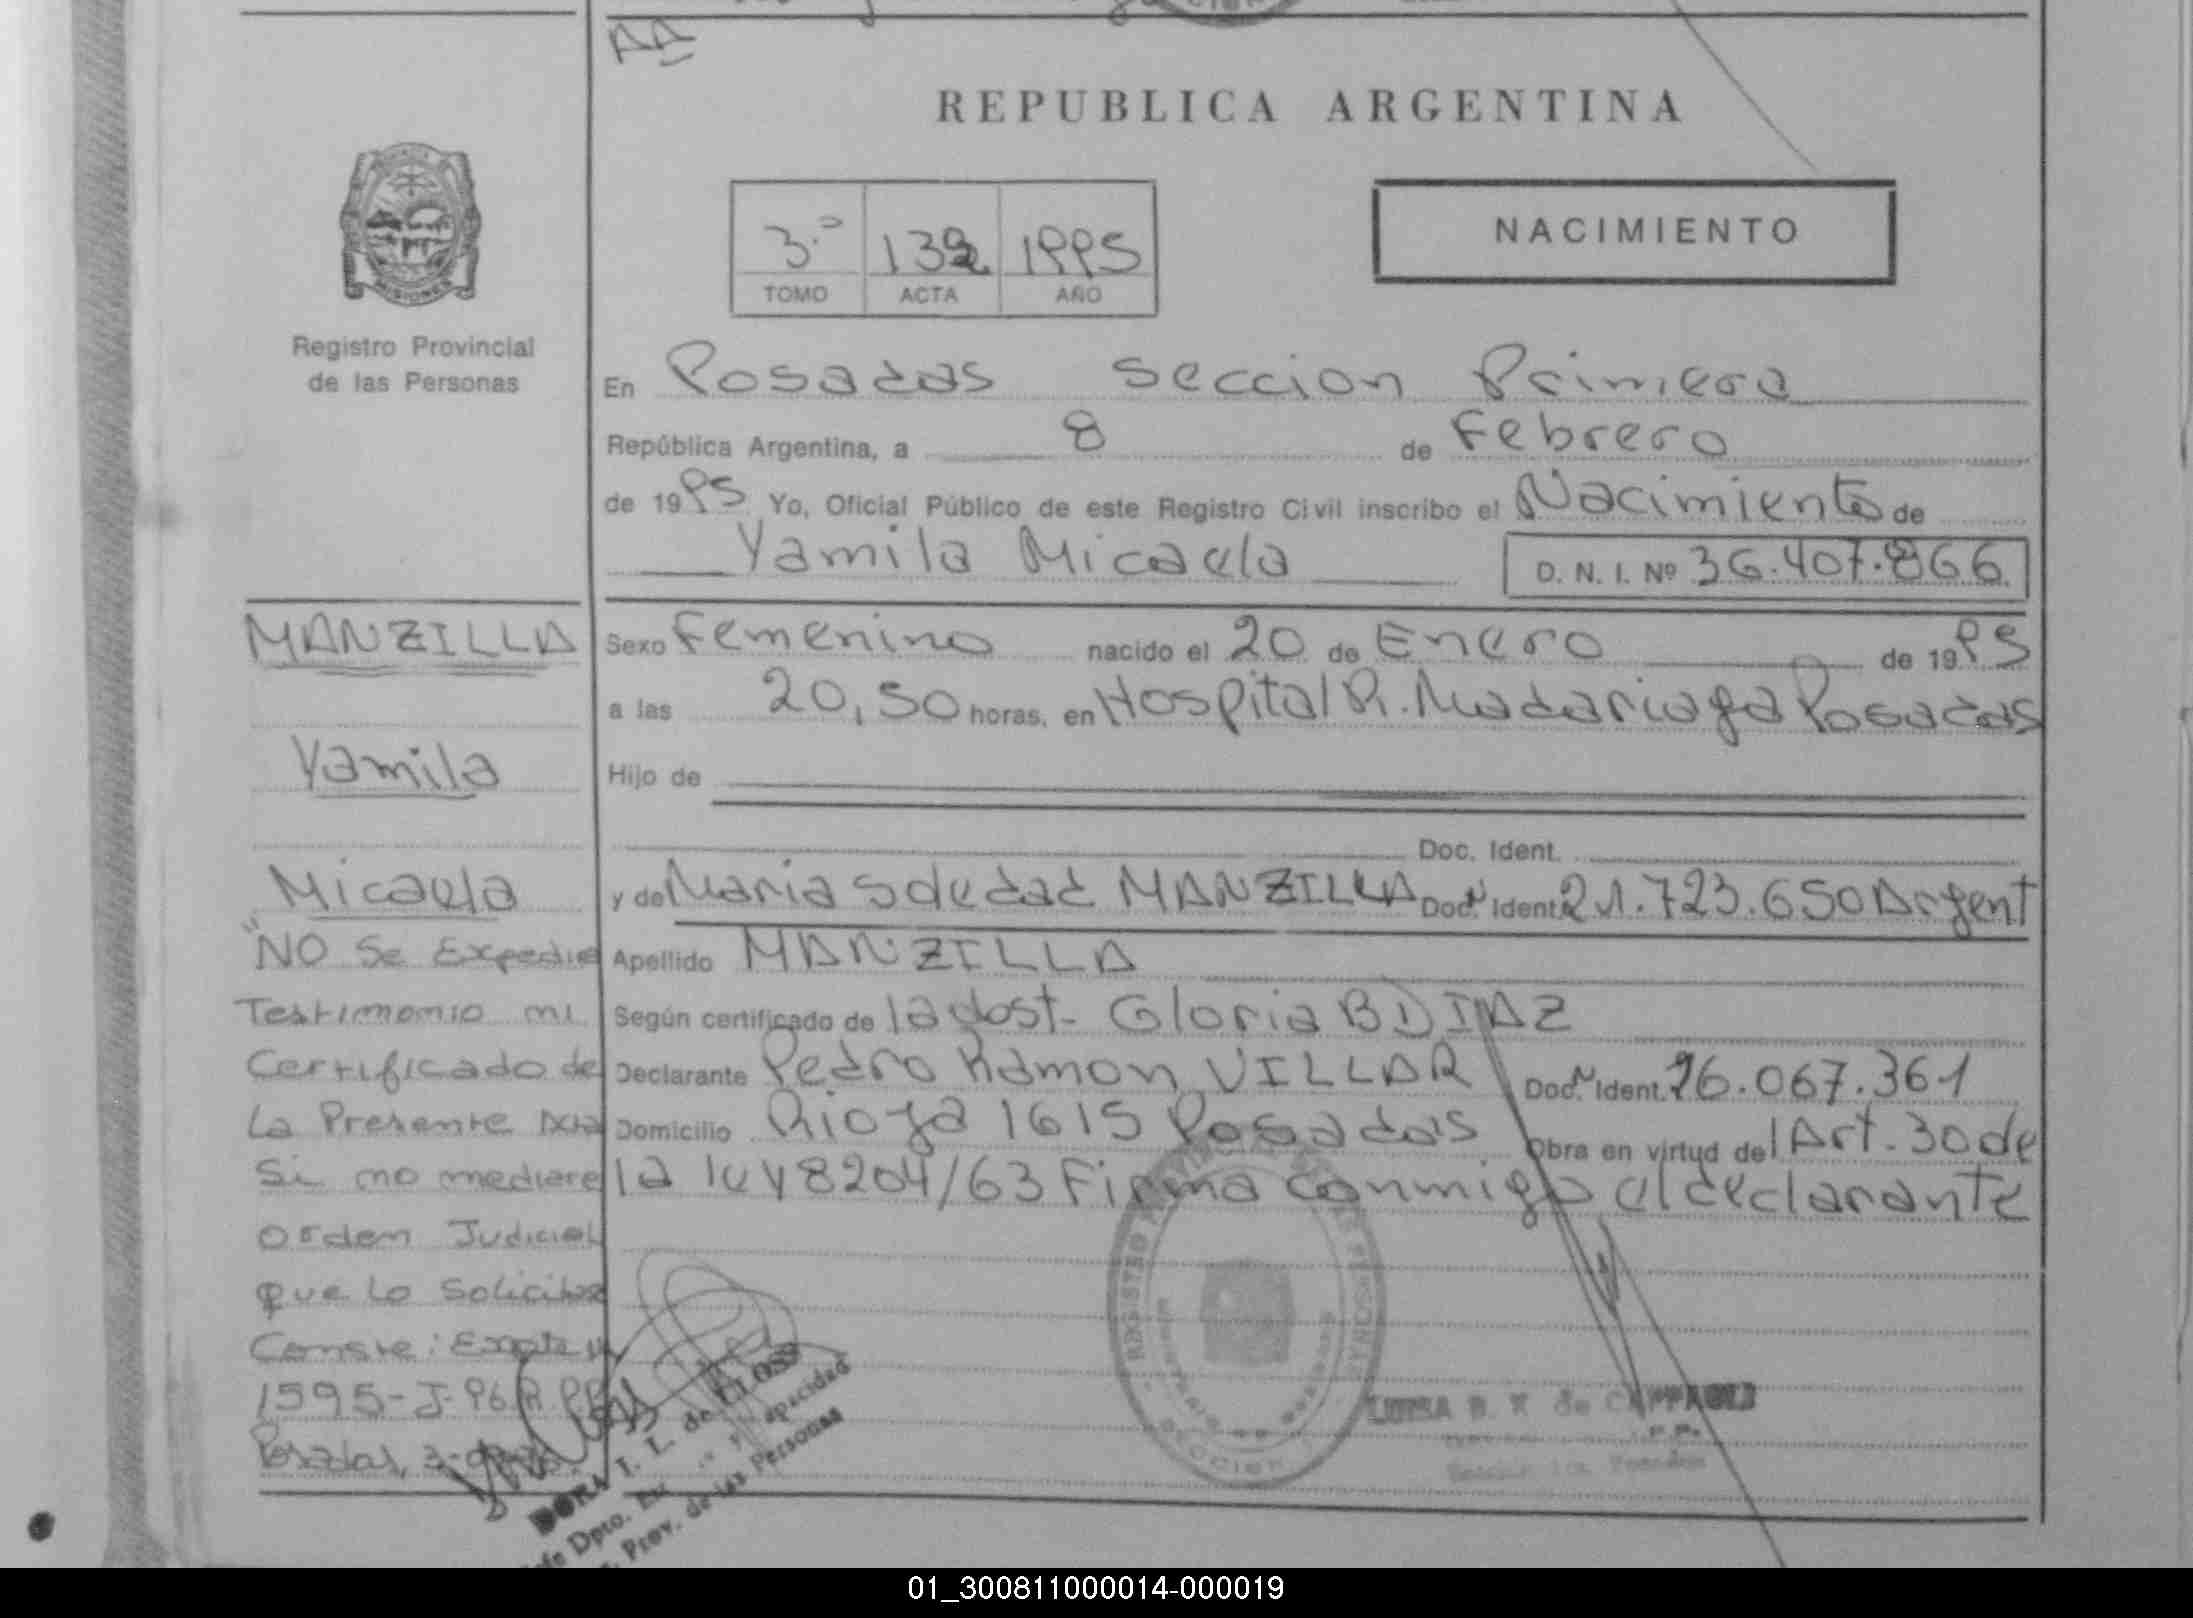 AA
REPUBLICA ARGENTINA
NACIMIENTO
3.º 132 1995
TOMO ACTA AÑO
MISIONES
Registro Provincial
de las Personas
En Posadas Seccion Primera
República Argentina, a 8 de Febrero
de 1995 Yo, Oficial Público de este Registro Civil inscribo el Nacimiento de
Yamila Micaela D. N. I. Nº 36.407.866
MANZILLA
Yamila
Micaela
"NO Se Expedira
Testimonio ni
Certificado de
La Presente Acta
Si no mediare
orden Judicial
que Lo Solicitar
Conste:
1595-J-96 R.PP
Posadas, 3-
Sexo Femenino nacido el 20 de Enero de 1995
a las 20,50 horas, en Hospital R. Madariaga Posadas
Hijo de
Doc. Ident.
y de Maria Soledad MANZILLA Doc. Ident. 21.723.650 Argent
Apellido MANZILLA
Según certificado de la obst. Gloria B DIAZ
Declarante Pedro Ramon VILLAR Doc. Ident. 16.067.361
Domicilio Rioja 1615 Posadas Obra en virtud del Art. 30 de
la ley 8204/63 Firma conmigo el declarante
DORA I. L. de CLOSS
Dpto. y Capacidad
Prov. de las Personas
REGISTRO PROVINCIAL DE LAS PERSONAS
SECCION
LUISA de
Sección 1ra. Posadas
01_300811000014-000019